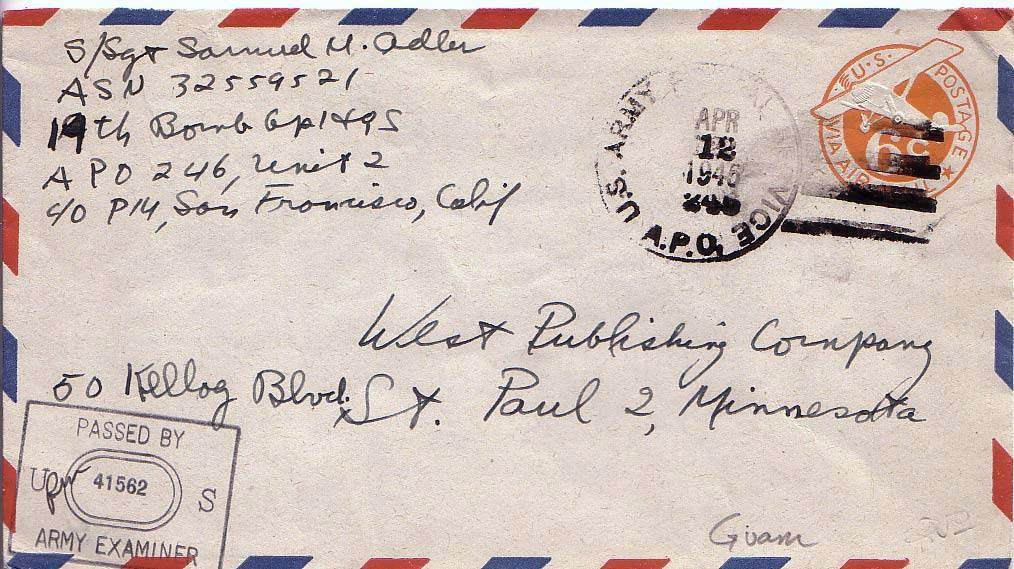 S/Sgt Samuel M. Adler
ASN 32559521
19th Bomb Gp
APO 246, Unit 2
c/o PM, San Francisco, Calif
U.S. ARMY VICE
APR
12
1945
246
A.P.O.
U.S. POSTAGE
6c
VIA AIR
West Publishing Company
50 Kellog Blvd. St. Paul 2, Minnesota
PASSED BY
U 41562 S
ARMY EXAMINER
Guam